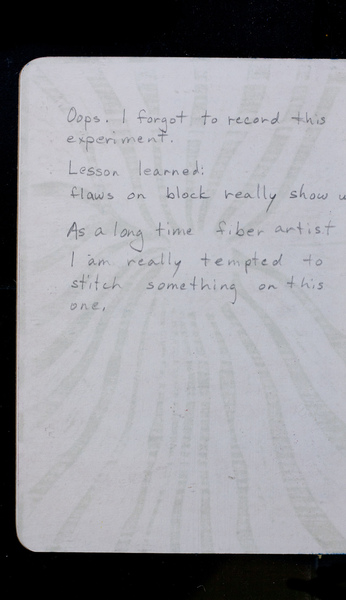 Oops. I forgot to record this
experiment.
Lesson learned:
flaws on block really show
As a long time fiber artist
I am really tempted to
stitch something on this
one.